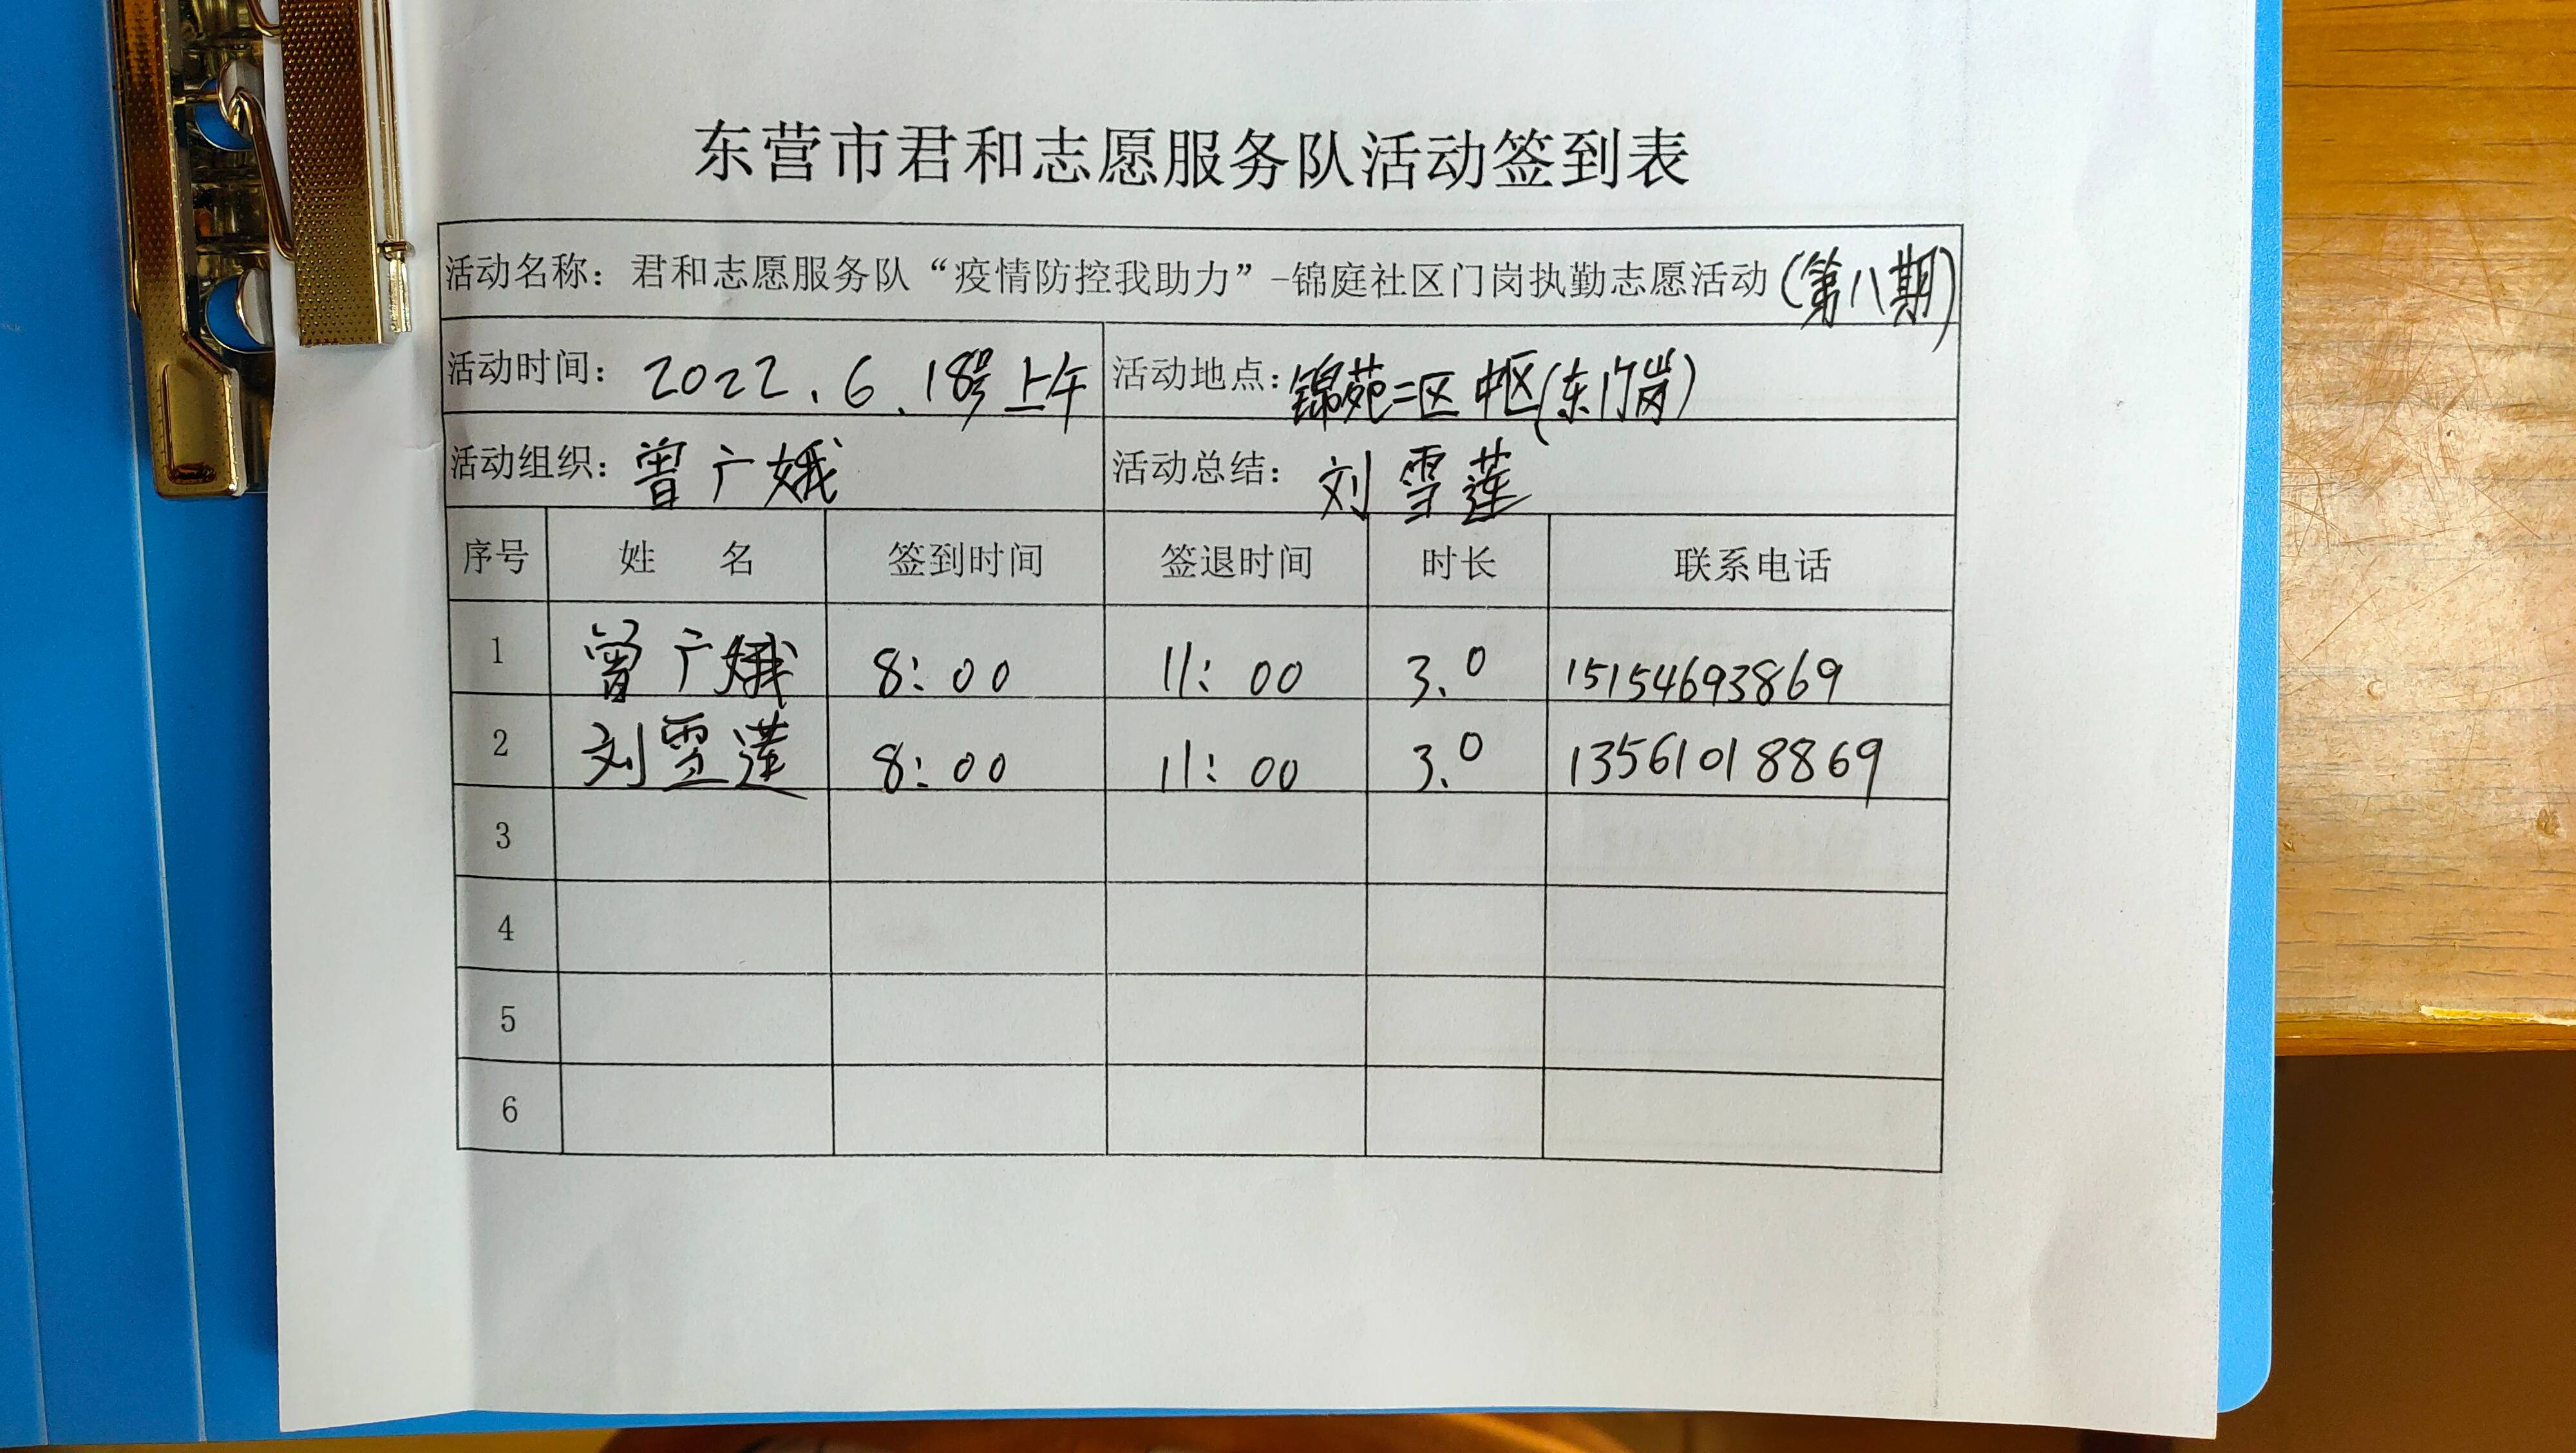 东营市君和志愿服务队活动签到表
活动名称：君和志愿服务队“疫情防控我助力”-锦庭社区门岗执勤志愿活动（第八期）
活动时间：2022.6.18号上午 活动地点：锦苑二区中区（东门岗）
活动组织：曾广娥 活动总结：刘雪莲
序号 姓 名 签到时间 签退时间 时长 联系电话
1 曾广娥 8:00 11:00 3.0 15154693869
2 刘雪莲 8:00 11:00 3.0 13561018869
3
4
5
6